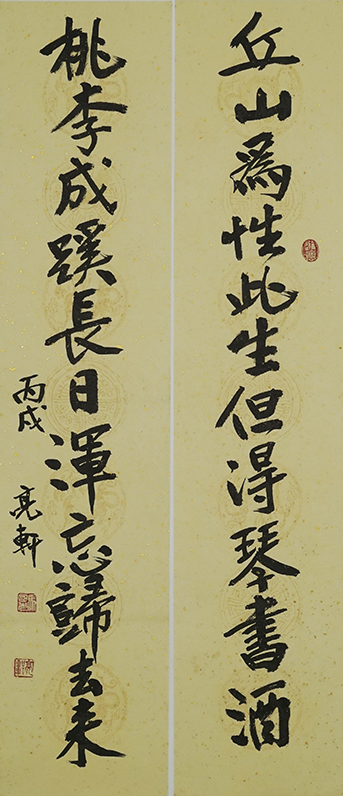 丘山爲性此生但得琴書酒
桃李成蹊長日渾忘歸去来
丙戌
亮軒